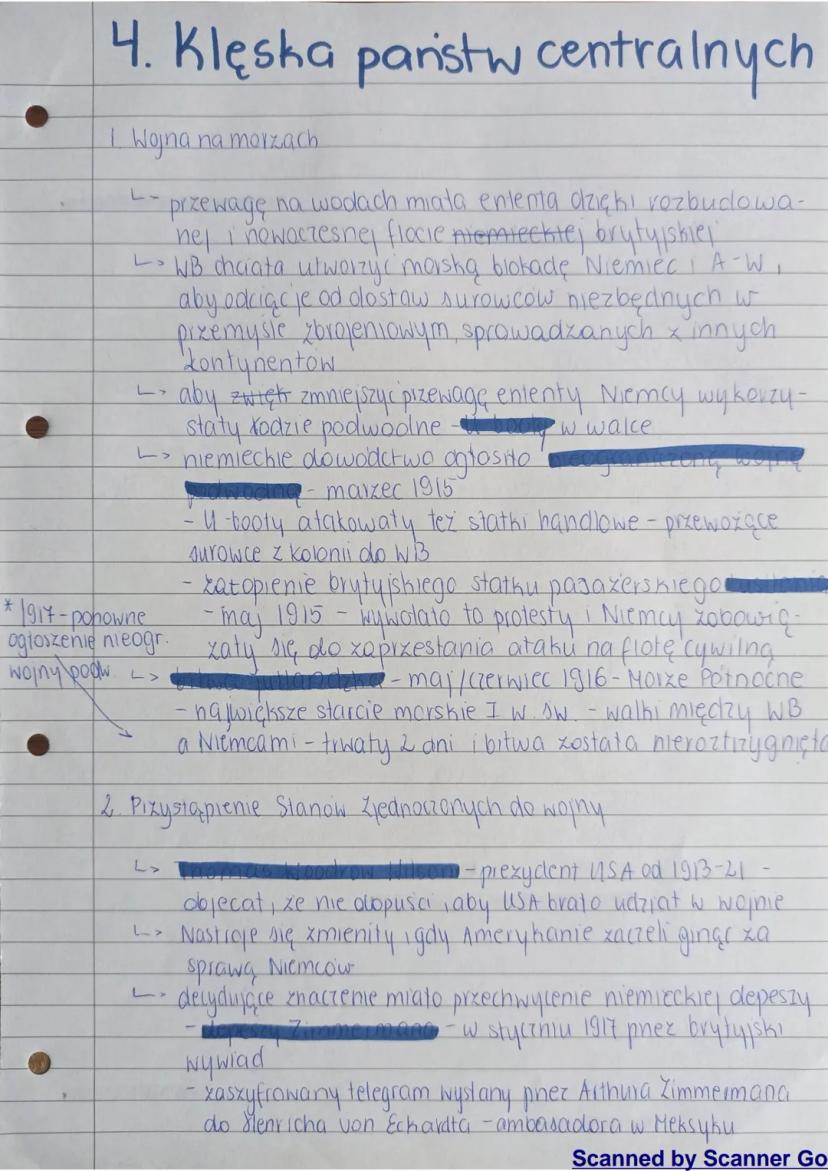 4. Klęska państw centralnych
1. Wojna na morzach
↳ przewagę na wodach miała ententa dzięki rozbudowa-
nej i nowoczesnej flocie niemieckiej brytyjskiej
↳ WB chciała utworzyć morską blokadę Niemiec i A-W,
aby odciąć je od dostaw surowców niezbędnych w
przemyśle zbrojeniowym, sprowadzanych z innych
kontynentów
↳ aby zwięk zmniejszyć przewagę ententy Niemcy wykorzy-
stały łodzie podwodne - U-booty w walce
↳ niemieckie dowództwo ogłosiło nieograniczoną wojnę
podwodną - marzec 1915
- U-booty atakowały też statki handlowe - przewożące
surowce z kolonii do WB
- zatopienie brytyjskiego statku pasażerskiego Lusitania
- maj 1915 - wywołało to protesty i Niemcy zobowią-
zały się do zaprzestania ataku na flotę cywilną
* 1917 - ponowne
ogłoszenie nieogr.
wojny podw.
↳ bitwa jutlandzka - maj/czerwiec 1916 - Morze Północne
- największe starcie morskie I w. św. - walki między WB
a Niemcami - trwały 2 dni i bitwa została nieroztrzygnięta
2. Przystąpienie Stanów Zjednoczonych do wojny
↳ Thomas Woodrow Wilson - prezydent USA od 1913-21 -
obiecał, że nie dopuści, aby USA brało udział w wojnie
↳ Nastroje się zmieniły, gdy Amerykanie zaczeli ginąć za
sprawą Niemców
↳ decydujące znaczenie miało przechwycenie niemieckiej depeszy
- depeszy Zimmermana - w styczniu 1917 przez brytyjski
wywiad
- zaszyfrowany telegram wysłany przez Arthura Zimmermana
do Henricha von Eckardta - ambasadora w Meksyku
Scanned by Scanner Go